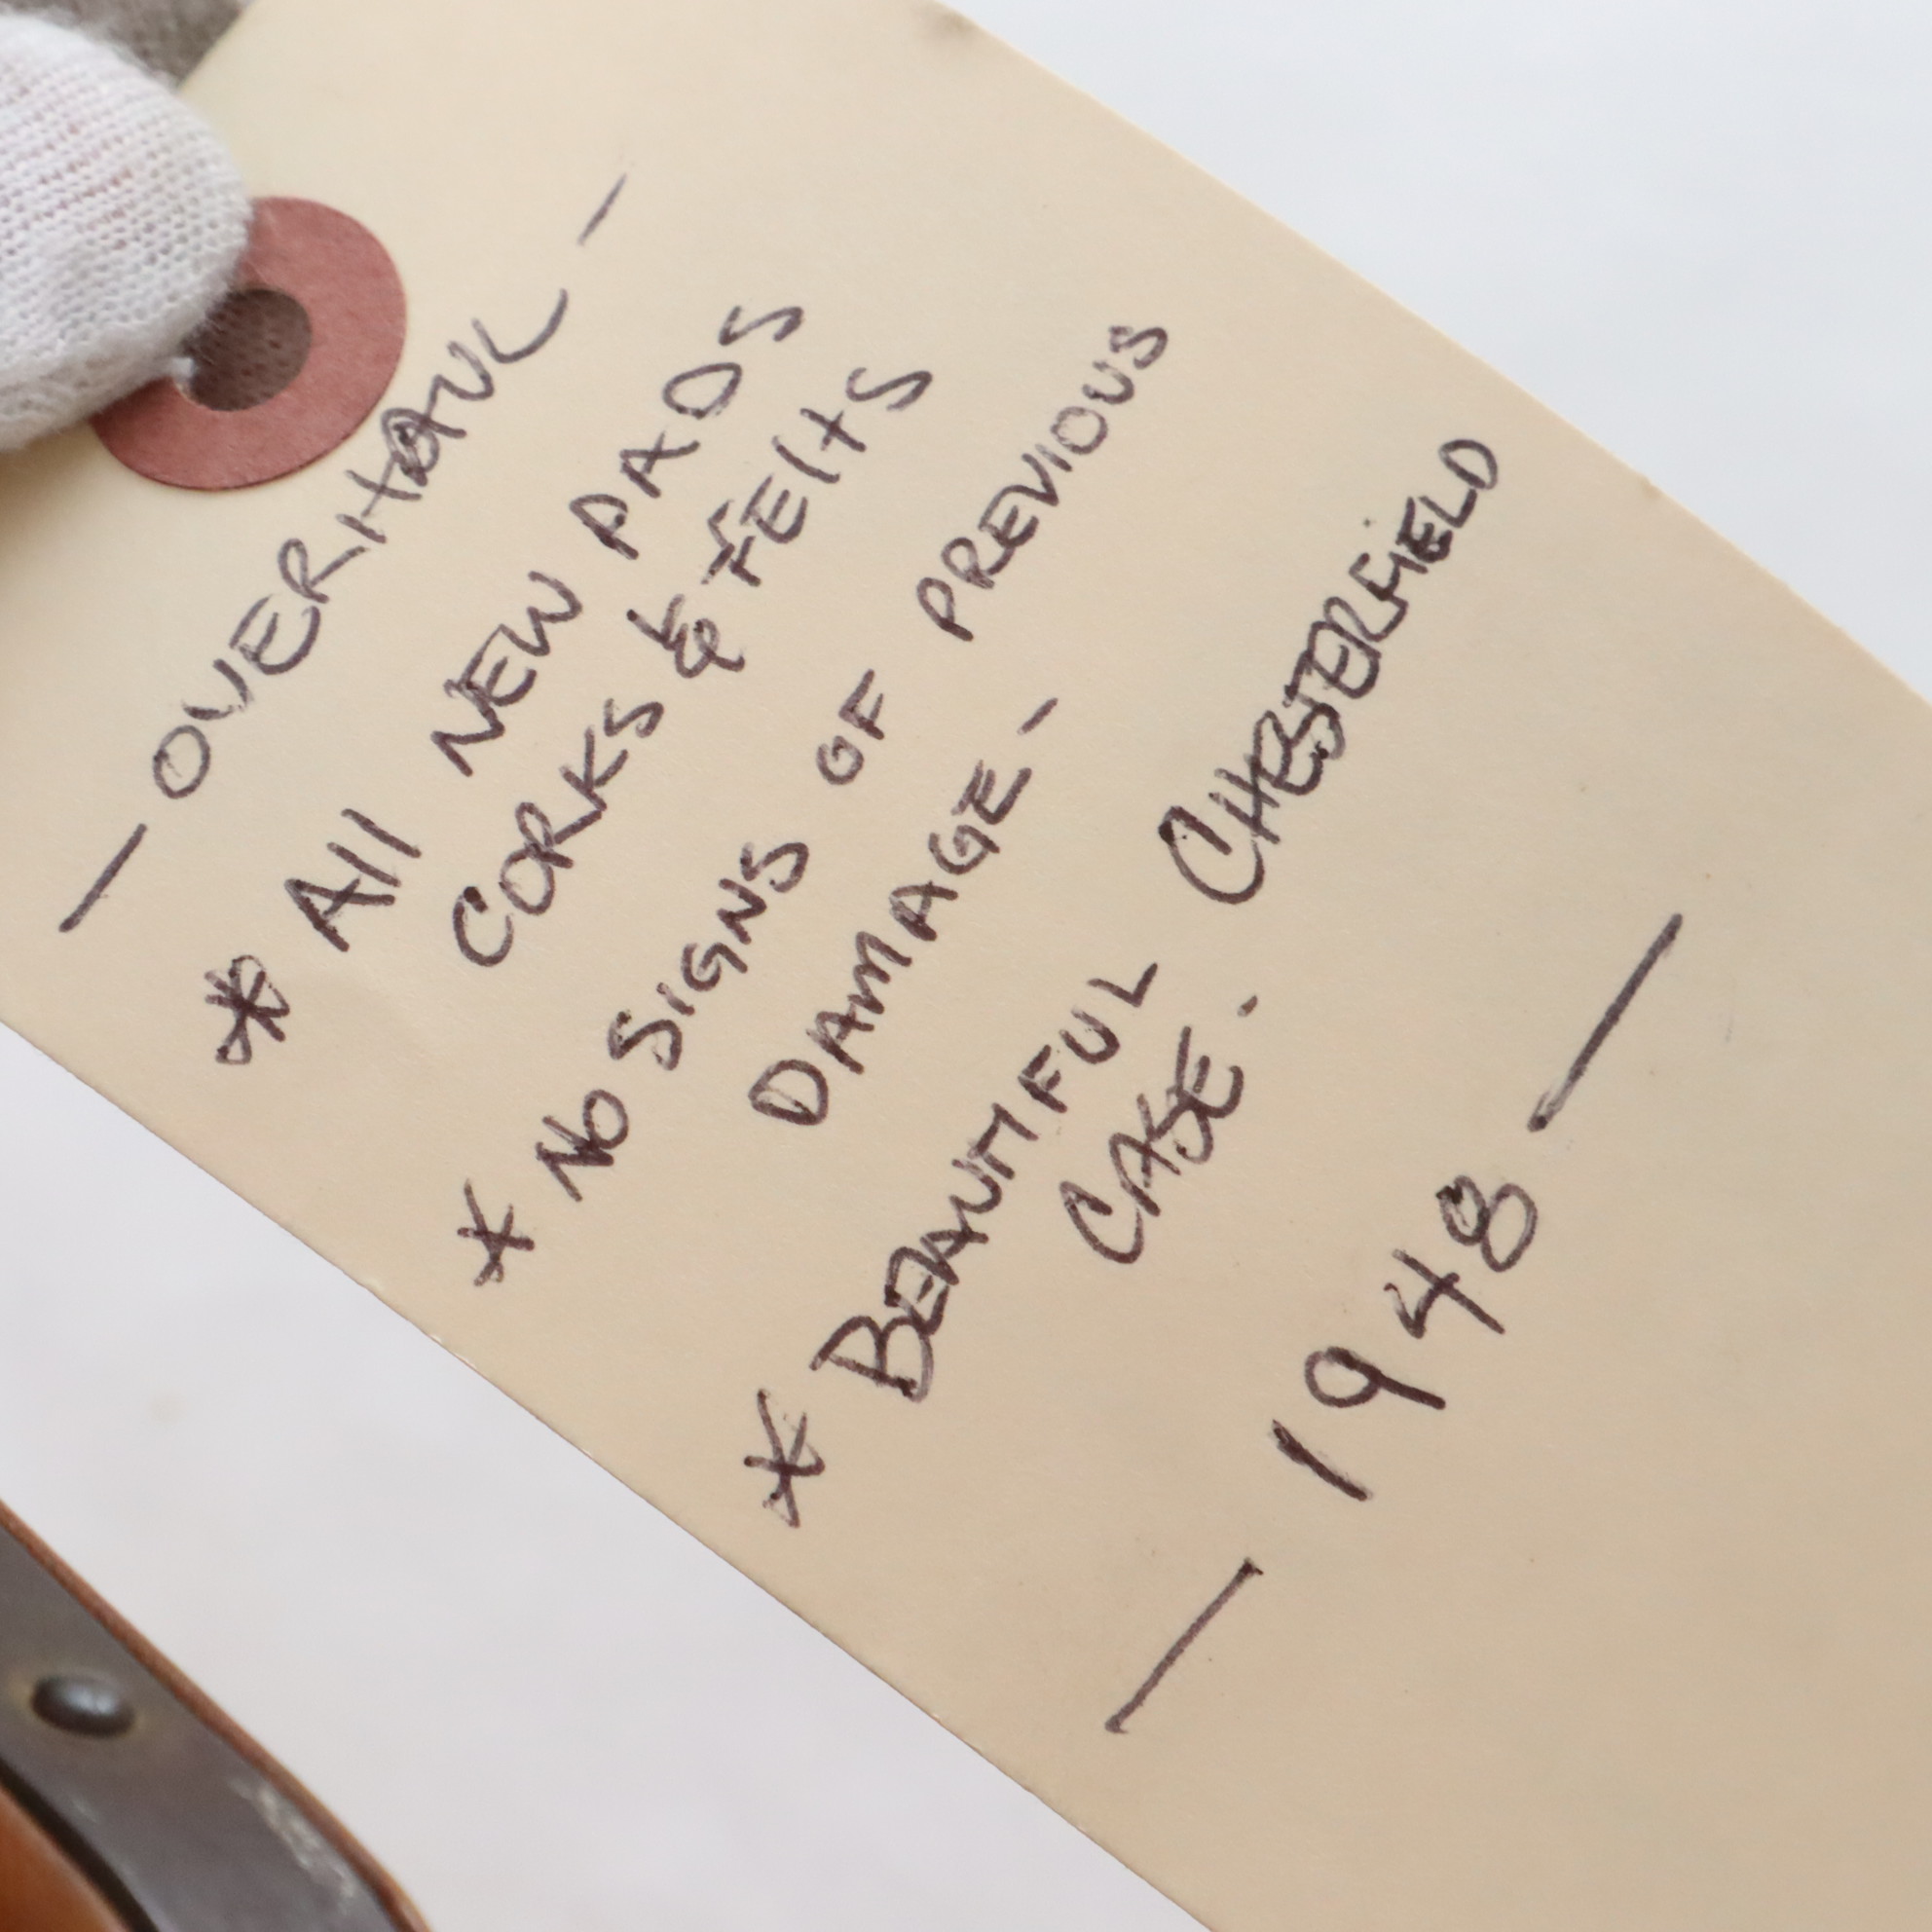 — OVERHAUL —
* All NEW PADS
CORKS & FElts
* No SIGNS OF PREVIOUS
DAMAGE -
* BEAUTIFUL CHESTERFIELD
CASE.
— 1948 —